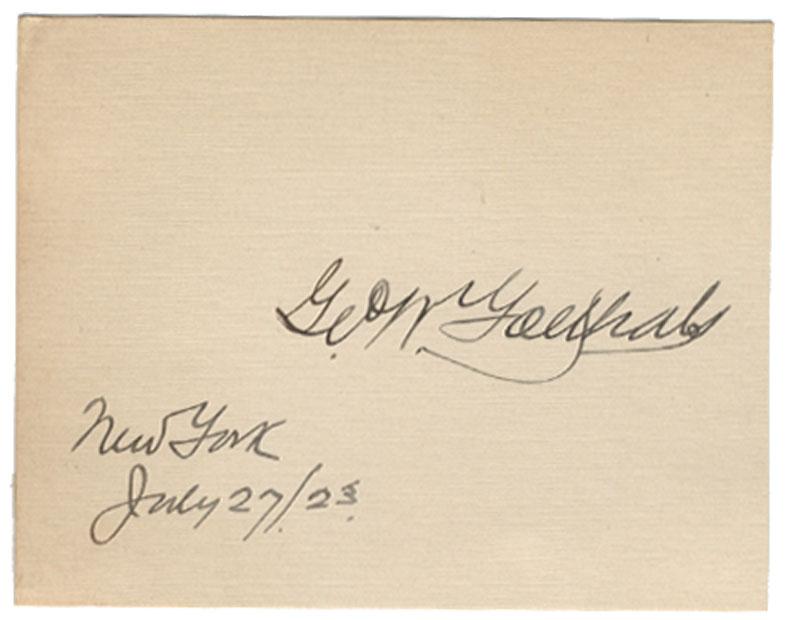 Geo W. Goethals
New York
July 27/23.